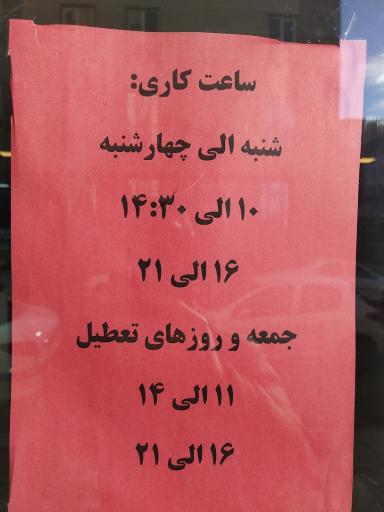 ساعت کاری:
شنبه الی چهارشنبه
۱۰ الی ۱۴:۳۰
۱۶ الی ۲۱
جمعه و روزهای تعطیل
۱۱ الی ۱۴
۱۶ الی ۲۱